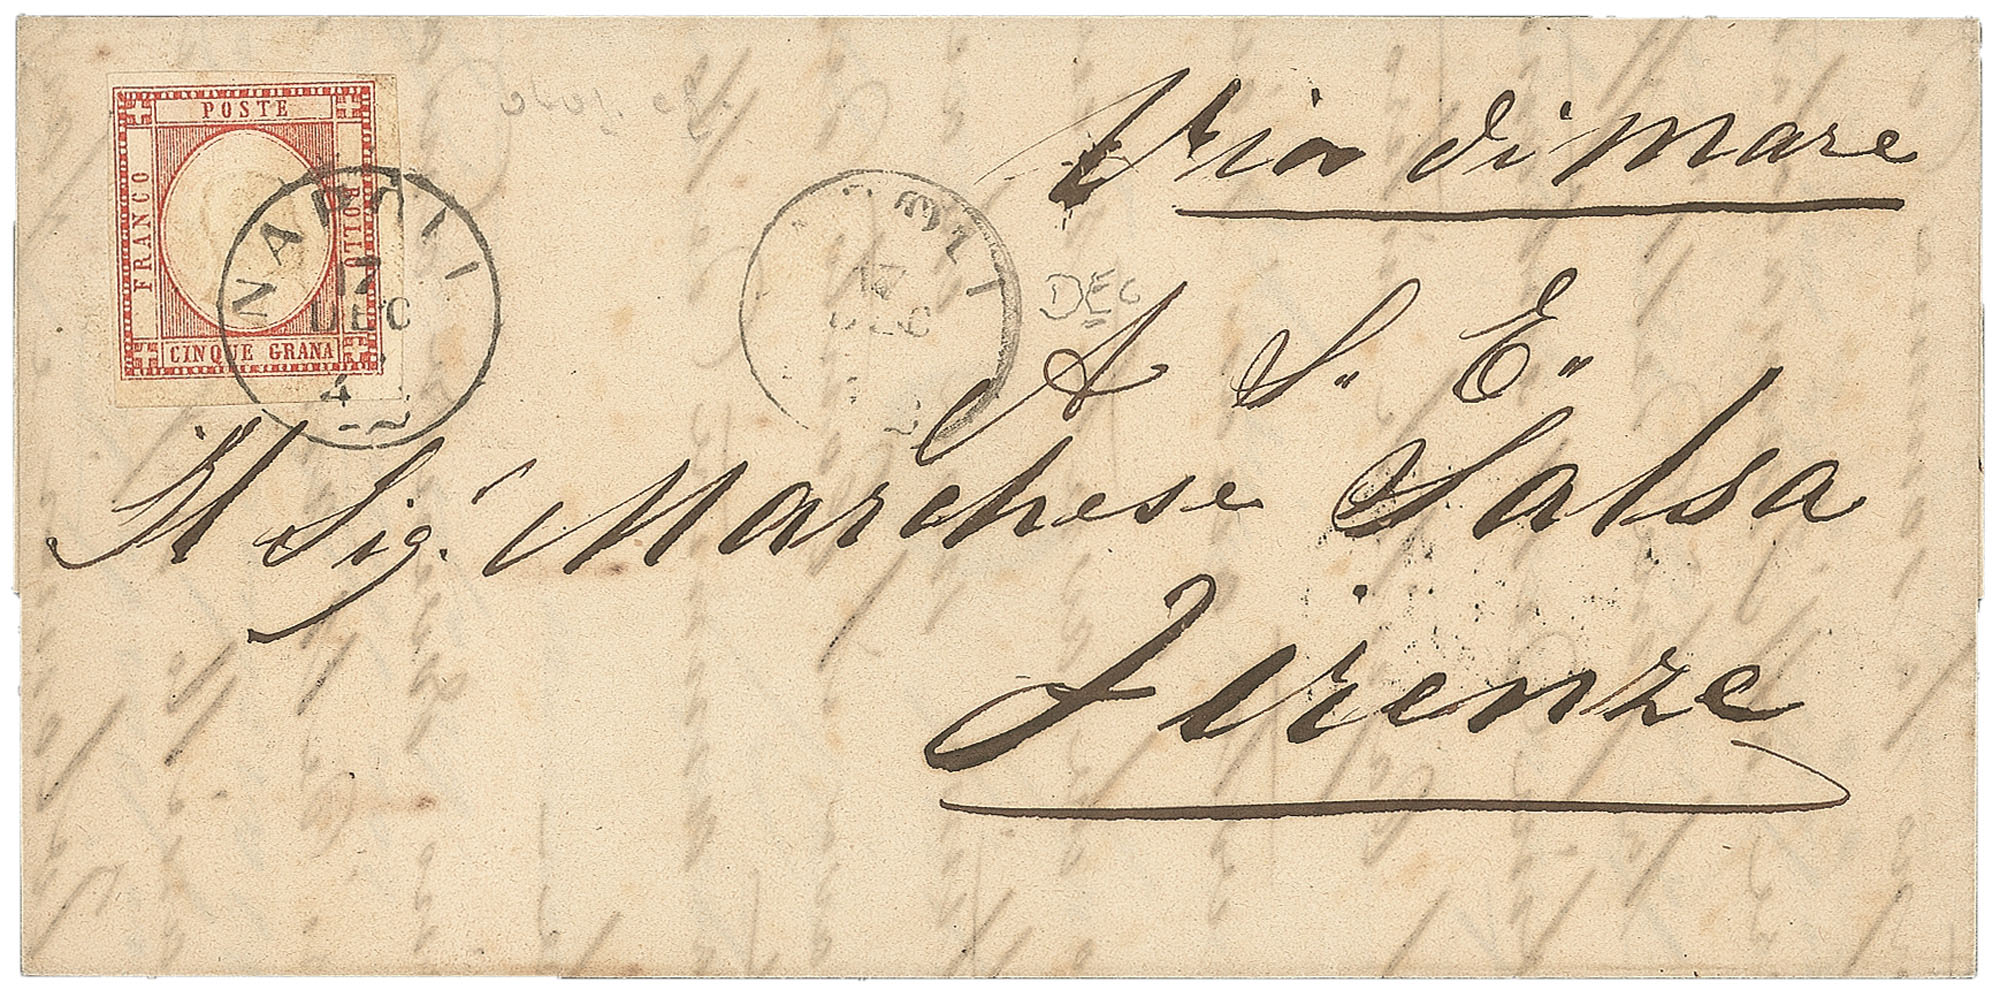 POSTE
FRANCO
BOLLO
CINQUE GRANA
NAPOLI
17
DEC
4
Via di Mare
17
DEC
DEC
A S. E.
Il Sig. Marchese Salsa
Firenze